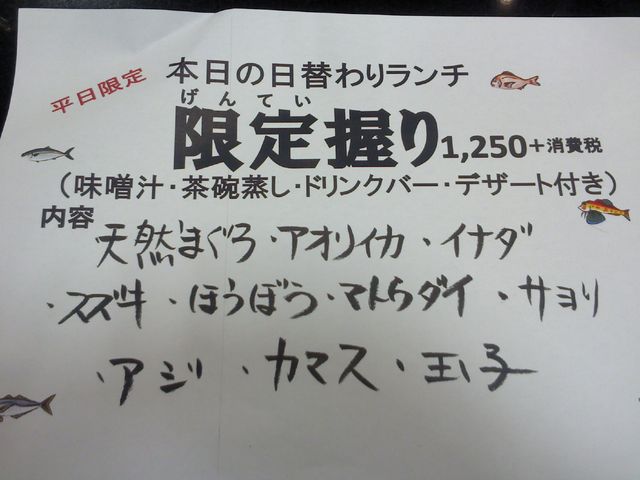 平日限定
本日の日替わりランチ
げんてい
限定握り 1,250+消費税
(味噌汁・茶碗蒸し・ドリンクバー・デザート付き)
内容
天然まぐろ・アオリイカ・イナダ
・スズキ・ほうぼう・マトウダイ・サヨリ
・アジ・カマス・玉子